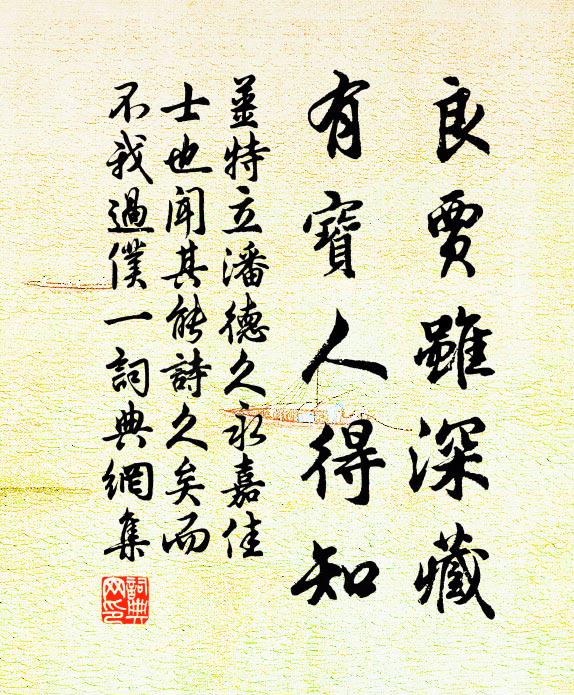 良賈雖深藏
有寶人得知
姜特立潘德久永嘉佳
士也聞其能詩久矣而
不我過僕一詞典網集
詞典
网印